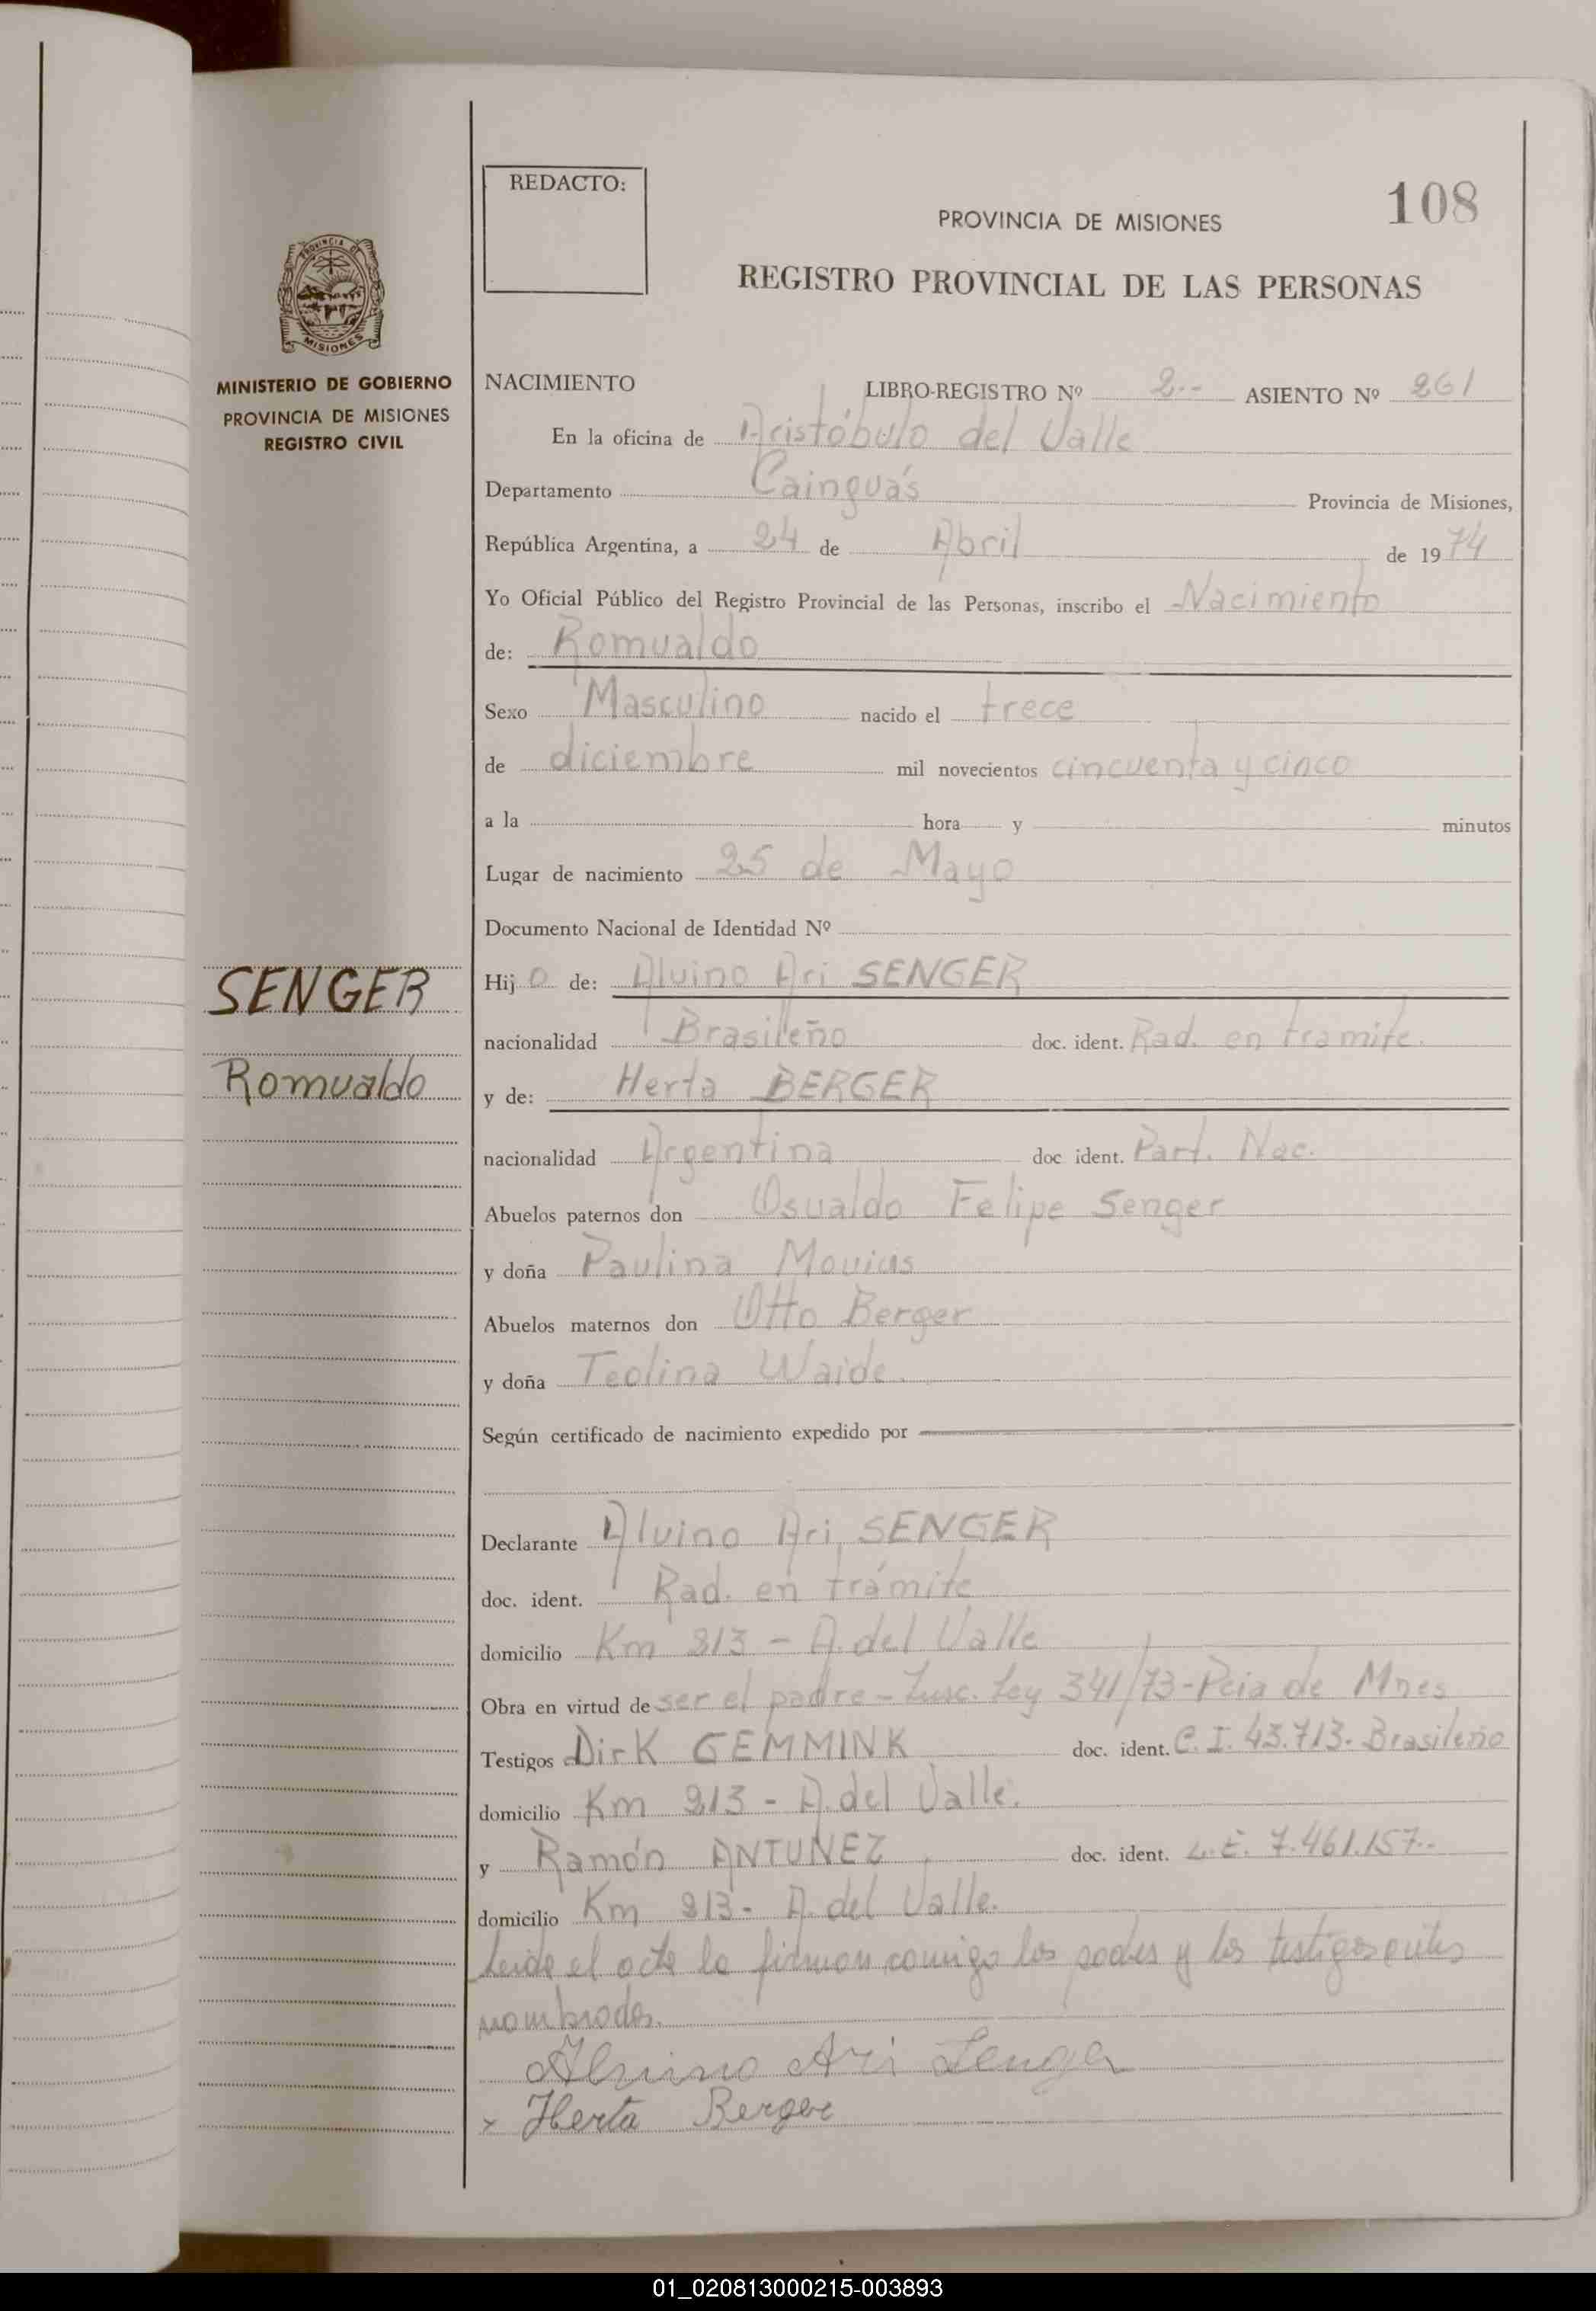 REDACTO:
108
PROVINCIA DE MISIONES
REGISTRO PROVINCIAL DE LAS PERSONAS
PROVINCIA DE
MISIONES
MINISTERIO DE GOBIERNO
PROVINCIA DE MISIONES
REGISTRO CIVIL
NACIMIENTO LIBRO-REGISTRO Nº 2-- ASIENTO Nº 261
En la oficina de Aristóbulo del Valle
Departamento Cainguás Provincia de Misiones,
República Argentina, a 24 de Abril de 1974
Yo Oficial Público del Registro Provincial de las Personas, inscribo el Nacimiento
de: Romualdo
Sexo Masculino nacido el trece
de diciembre mil novecientos cincuenta y cinco
a la hora y minutos
Lugar de nacimiento 25 de Mayo
Documento Nacional de Identidad Nº
SENGER
Romualdo
Hijo de: Alvino Ari SENGER
nacionalidad Brasileño doc. ident. Rad. en tramite.
y de: Herta BERGER
nacionalidad Argentina doc ident. Part. Nac.
Abuelos paternos don Osualdo Felipe Senger
y doña Paulina
Abuelos maternos don Otto Berger
y doña Teolina Waide.
Según certificado de nacimiento expedido por
Declarante Alvino Ari SENGER
doc. ident. Rad. en trámite
domicilio Km 213 - A. del Valle
Obra en virtud de ser el padre - Insc. Ley 341/73 - Pcia de Mnes
Testigos Dirk GEMMINK doc. ident. C. I. 43.713. Brasileño
domicilio Km 213 - A. del Valle.
y Ramón ANTUNEZ doc. ident. L. E. 7.461.157--
domicilio Km 213 - A. del Valle.
Leida el acta la firman comigo los padres y los testigos antes
nombrados.
Alvino Ari Senger
x Herta Berger
01_020813000215-003893